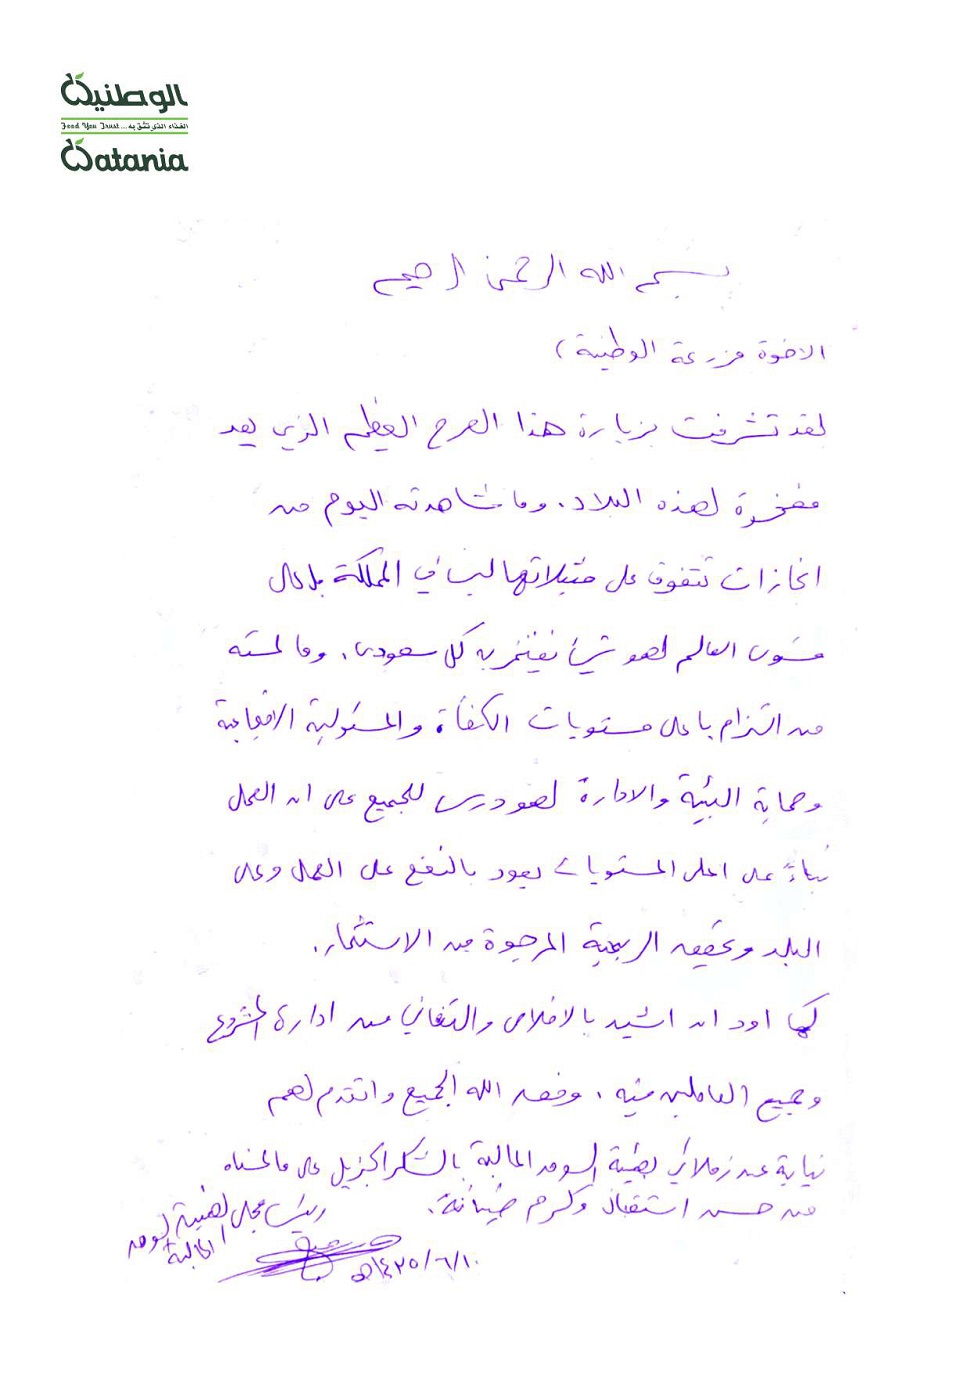 الوطنية
Food You Trust... الغذاء الذي تثق به
Watania
بسم الله الرحمن الرحيم
الاخوة مزرعة الوطنية)
لقد تشرفت بزيارة هذا الصرح العظيم الذي يعد
مفخرة لهذه البلاد. وما شاهدته اليوم من
انجازات تتفوق على مثيلاتها ليس في المملكة بل على
مستوى العالم لهو شيء يفتخر به كل سعودي. وما لمسته
من التزام باعلى مستويات الكفأة والمسئولية الاجتماعية
وحماية البيئة والادارة لهو درس للجميع على ان العمل
بناءً على اعلى المستويات يعود بالنفع على العمل وعلى
البلد وتحقيق الربحية المرجوة من الاستثمار.
كما اود ان اشيد بالاخلاص والتفاني من ادارة المشروع
وجميع العاملين فيه. وفق الله الجميع واتقدم لهم
نيابة عن زملائي بهيئة السوق المالية بالشكر الجزيل على ما لمسناه
من حسن استقبال وكرم ضيافة.
رئيس مجلس هيئة السوق
المالية
١٤٢٥/٦/١٠هـ